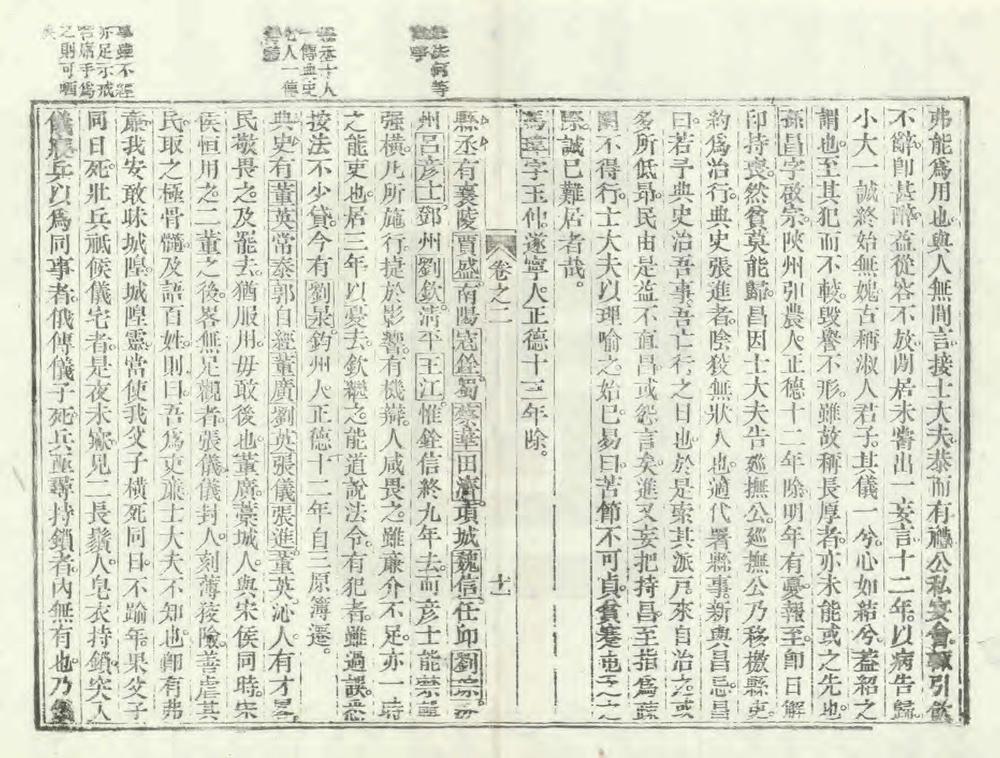 弗能爲用也與人無間言接士大夫恭而有禮公私宴會輒引飲
不辭卽甚醉益從容不放閒居未嘗出一妄言十二年以病告歸
小大一誠終始無媿古稱淑人君子其儀一兮心如結兮蓋紹之
謂也至其犯而不較毀譽不形雖故稱長厚者亦未能或之先也
孫昌字啟宗陝州引農人正德十二年除明年有憂報至卽日解
印持喪然貧莫能歸昌因士大夫告廵撫公廵撫公乃移檄縣吏
約爲治行典史張進者陰狡無狀人也適代署縣事新與昌忌昌
曰若予典史治吾事吾亡行之日也於是索其派戸來自治之或
多所低昻民由是益不直昌或怨言矣進又妄把持昌至指爲
不得行士大夫以理喻之始巳易曰苦節不可貞貧
誠巳難居者哉
馮瑋字玉仲遂寧人正德十三年除
卷之二
十一
縣丞有襄陵賈盛南陽寇銓蜀蔡華田濟項城魏信任邱劉
州呂彥士鄧州劉欽淸平王江惟銓信終九年去而彥士能禁
强橫凡所施行捷於影響有機辯人咸畏之雖廉介不足亦一時
之能吏也居三年以憂去欽繼之能道說法令有犯者雖過誤悉
按法不少貸今有劉杲鈞州人正德十二年自三原簿遷
典史有董英常泰郭自經董廣劉英張儀張進董英沁人有才畧
民敬畏之及罷去猶服用毋敢後也董廣藁城人與宋侯同時宋
侯恒用之二董之後畧無足觀者張儀儀封人刻薄狡險善虐其
民取之極骨髓及語百姓則曰吾爲吏亷士大夫不知也卽有弗
亷我安敢昧城隍城隍靈當使我父子橫死同日不踰年果父子
同日死壯兵祇候儀宅者是夜未寢見二長鬚人皂衣持鎖突入
儀寢兵以爲同事者俄傳儀子死兵亟尋持鎖者內無有也乃
法何等
十人
傳典史
人一傳
事雖不經
亦足示戒
席手爲
之則可